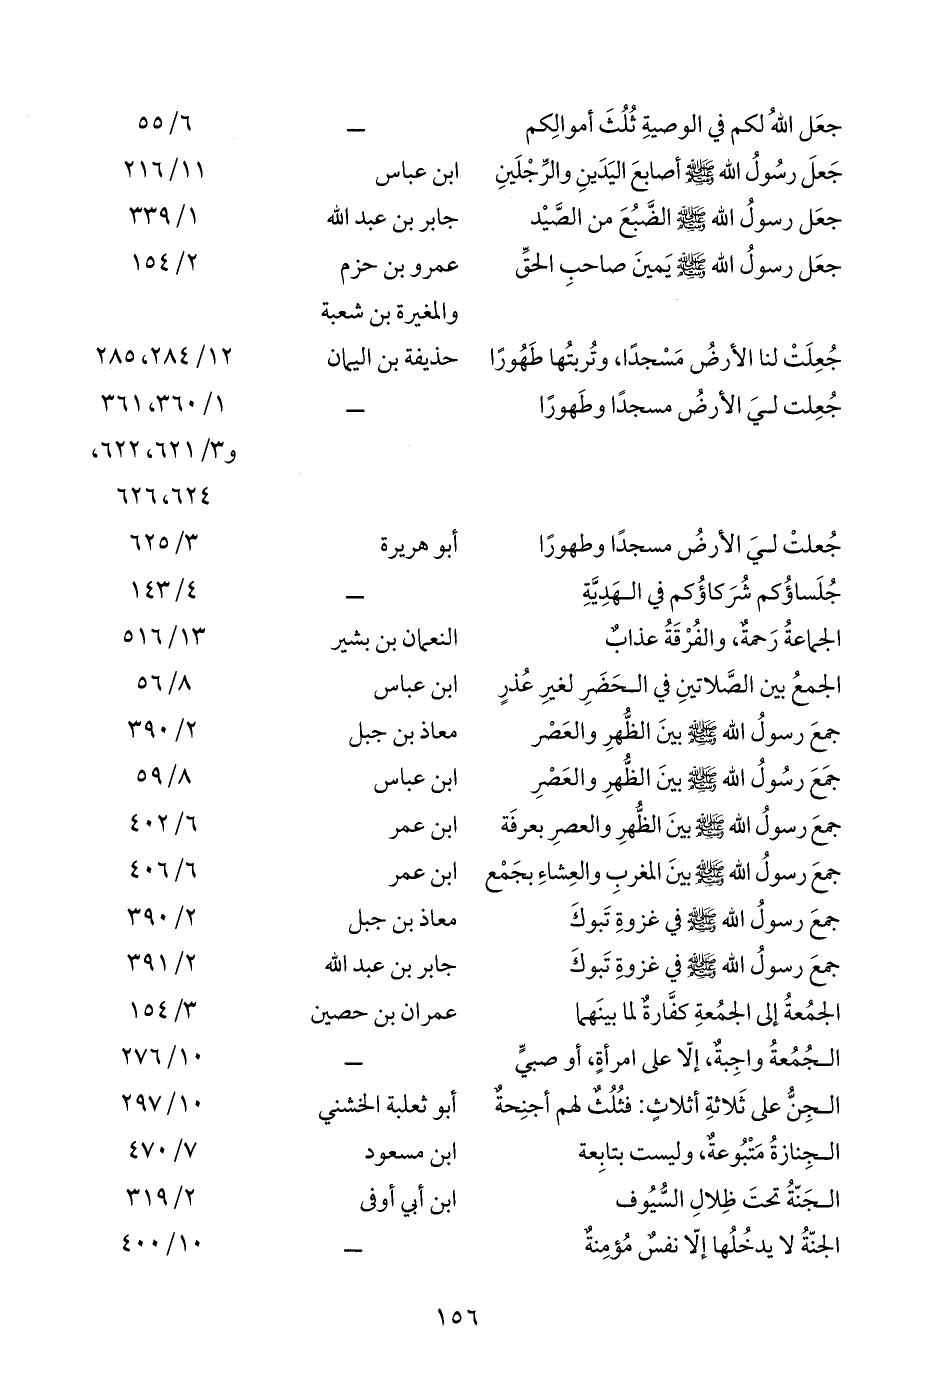 جعَل اللهُ لكم في الوصيةِ ثُلُثَ أموالِكم — ٦/ ٥٥
جَعلَ رسُولُ الله ﷺ أصابعَ اليَدَينِ والرِّجْلَينِ ابن عباس ١١/ ٢١٦
جعَل رسولُ الله ﷺ الضَّبُعَ من الصَّيْد جابر بن عبد الله ١/ ٣٣٩
جعَل رسولُ الله ﷺ يَمينَ صاحبِ الحقِّ عمرو بن حزم ٢/ ١٥٤
والمغيرة بن شعبة
جُعِلَتْ لنا الأرضُ مَسْجدًا، وتُربتُها طَهُورًا حذيفة بن اليمان ١٢/ ٢٨٤، ٢٨٥
جُعِلت لـيَ الأرضُ مسجدًا وطَهورًا — ١/ ٣٦٠، ٣٦١
و٣/ ٦٢١، ٦٢٢،
٦٢٤، ٦٢٦
جُعلتْ لـيَ الأرضُ مسجدًا وطهورًا أبو هريرة ٣/ ٦٢٥
جُلَساؤُكم شُرَكاؤُكم في الـهَدِيَّةِ — ٤/ ١٤٣
الجماعةُ رَحمةٌ، والفُرْقَةُ عذابٌ النعمان بن بشير ١٣/ ٥١٦
الجمعُ بين الصَّلاتينِ في الـحَضَرِ لغيرِ عُذرٍ ابن عباس ٨/ ٥٦
جمعَ رسولُ الله ﷺ بينَ الظُّهرِ والعَصْر معاذ بن جبل ٢/ ٣٩٠
جمَعَ رسُولُ الله ﷺ بينَ الظُّهرِ والعَصْرِ ابن عباس ٨/ ٥٩
جمعَ رسولُ الله ﷺ بينَ الظُّهرِ والعصرِ بعرفَة ابن عمر ٦/ ٤٠٢
جمعَ رسولُ الله ﷺ بينَ المغربِ والعِشاءِ بجَمْع ابن عمر ٦/ ٤٠٦
جمعَ رسولُ الله ﷺ في غزوةِ تَبوكَ معاذ بن جبل ٢/ ٣٩٠
جمعَ رسولُ الله ﷺ في غزوةِ تَبوكَ جابر بن عبد الله ٢/ ٣٩١
الجمُعةُ إلى الجمُعةِ كفَّارةٌ لما بينَهما عمران بن حصين ٣/ ١٥٤
الـجُمُعةُ واجِبةٌ، إلّا على امرأةٍ، أو صبيٍّ — ١٠/ ٢٧٦
الـجِنُّ على ثَلاثةِ أثلاثٍ: فثُلُثٌ لهم أجنِحةٌ أبو ثعلبة الخشني ١٠/ ٢٩٧
الـجِنازةُ مَتْبُوعةٌ، وليست بتابِعة ابن مسعود ٧/ ٤٧٠
الـجَنّةُ تحتَ ظِلالِ السُّيُوف ابن أبي أوفى ٢/ ٣١٩
الجنّةُ لا يدخُلُها إلّا نفسٌ مُؤمِنةٌ — ١٠/ ٤٠٠
١٥٦